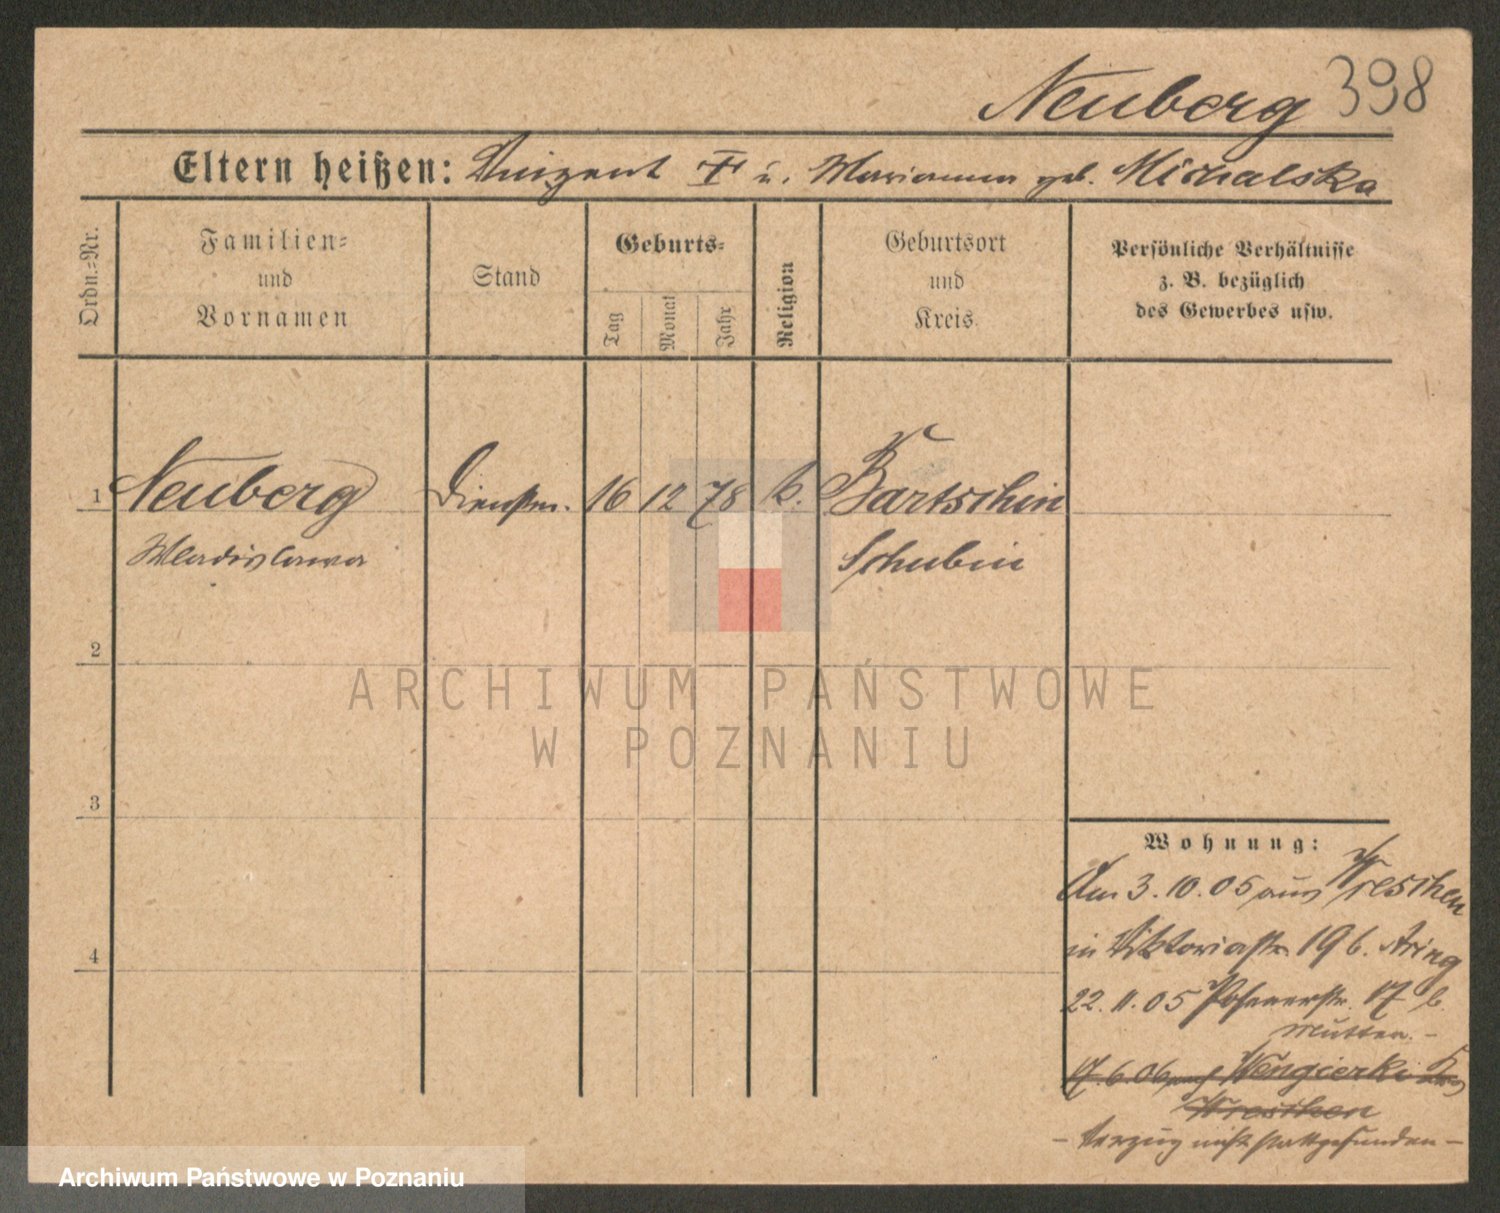 Neuberg 398
Eltern heißen: Vinzent † u. Marianna geb. Michalska
Ordn.=Nr.
Familien=
und
Vornamen
Stand
Geburts=
Tag
Monat
Jahr
Religion
Geburtsort
und
Kreis.
Persönliche Verhältnisse
z. B. bezüglich
des Gewerbes usw.
1 Neuberg Dienstm. 16 12 78 k. Bartschin
Wladislawa Schubin
2
3
4
Wohnung:
Am 3.10.05 aus Wreschen
in Viktoriastr. 19 b.
22.11.05 Posenerstr. 17 b.
Mutter. -
17.6.06 nach Wengierki Krs
Wreschen
- Verzug nicht stattgefunden -
ARCHIWUM PAŃSTWOWE
W POZNANIU
Archiwum Państwowe w Poznaniu